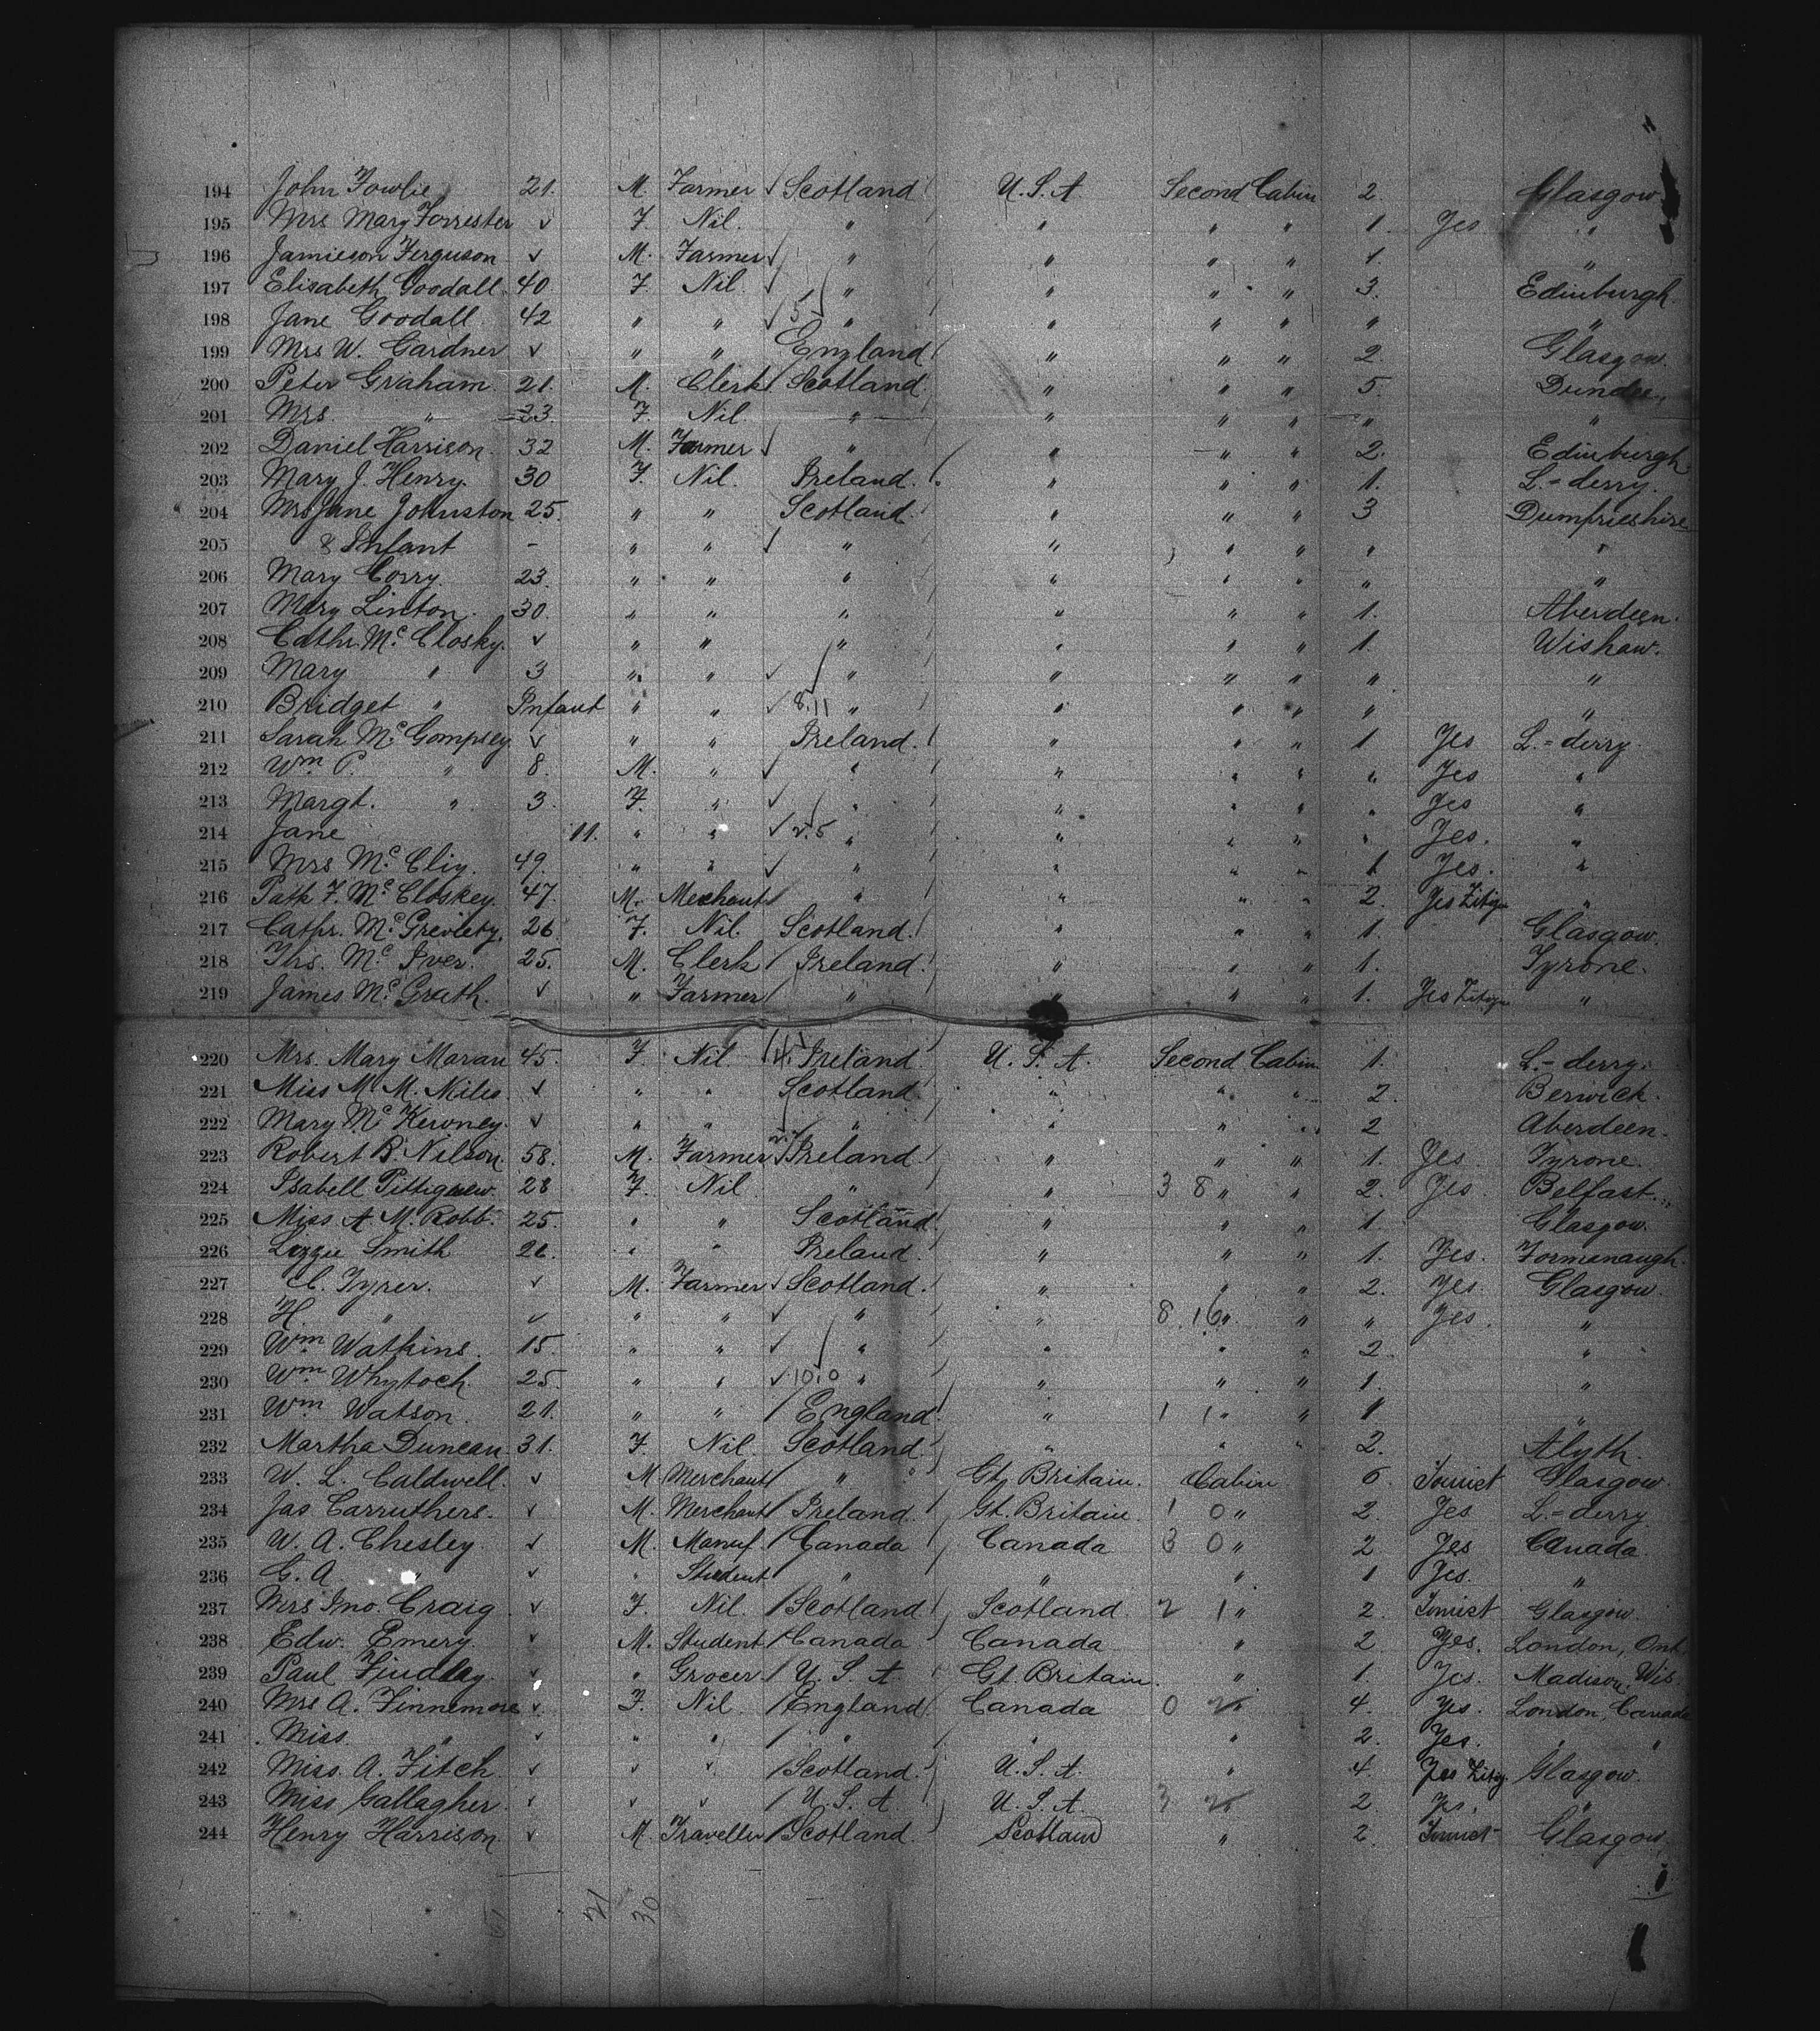 194 John Fowlie 21. M. Farmer ✓ Scotland U.S.A Second Cabin 2. Glasgow.
195 Mrs Mary Forrester ✓ F. Nil. " " " " 1. Yes "
196 Jamieson Ferguson ✓ M. Farmer ✓ " " " " 1 "
197 Elisabeth Goodall 40 F. Nil. " " " " 3. Edinburgh
198 Jane Goodall 42 " " ✓ 5 " " " " " "
199 Mrs W. Gardner ✓ " " England " " " 2. Glasgow.
200 Peter Graham 21. M. Clerk / Scotland " " " 5. Dundee,
201 Mrs. " 23. F. Nil. " " " " " "
202 Daniel Harrison. 32 M. Farmer ✓ " " " " 2. Edinburgh
203 Mary J. Henry. 30 F. Nil. Ireland. " " " 1. L.=derry.
204 Mrs Jane Johnston 25. " " Scotland. " " " 3 Dumfrieshire
205 & Infant - " " ✓ " " " " " "
206 Mary Corry. 23. " " " " " " " "
207 Mary Linton. 30. " " " " " " 1. Aberdeen.
208 Cathr. Mc Closky. ✓ " " " " " " 1. Wishaw.
209 Mary " 3 " " ✓ " " " " " "
210 Bridget " Infant " " ✓ 8.11 " " " " " "
211 Sarah Mc Gompsey ✓ " " Ireland. " " " 1 Yes L.=derry.
212 Wm P. " 8. M. " ✓ " " " " " Yes "
213 Margt. " 3. F. " ✓ " " " " " Yes "
214 Jane 11. " " ✓ 2.5 " " " " " Yes. "
215 Mrs Mc 49. " " ✓ " " " " 1 Yes. "
216 Patk F. Mc Closkey. 47. M. Merchant " " " " 2. Yes "
217 Cathr. Mc 26 F. Nil. Scotland. " " " 1. Glasgow.
218 Ths. Mc Iver. 25. M. Clerk / Ireland. " " " 1. Tyrone.
219 James Mc Grath. ✓ " Farmer / " " " " 1. Yes "
220 Mrs. Mary Moran 45. F Nil. 4. Ireland. U.S.A. Second Cabin 1. L.=derry.
221 Miss M. M. Niles. ✓ " " Scotland. " " " 2. Berwick.
222 Mary Mc ✓ " " " " " " 2 Aberdeen.
223 Robert B. Nilson. 58. M. Farmer Ireland " " " 1. Yes Tyrone.
224 Isabell Pittigrew. 28 F. Nil " " 3 8 " " 2. Yes. Belfast.
225 Miss A. M. Robb. 25. " " Scotland. " " " 1. Glasgow.
226 Lizzie Smith 26. " " Ireland. " " " 1. Yes. Formenaugh.
227 C. Tyrer. ✓ M. Farmer ✓ Scotland. " " " 2. Yes. Glasgow.
228 H. " ✓ " " ✓ " " 8 16 " " " Yes. "
229 Wm Watkins. 15. " " ✓ " " " " 2. "
230 Wm Whytoch. 25. " " ✓ 10.0 " " " " 1. "
231 Wm Watson. 21. " " / England. " 1 1 " " 1 "
232 Martha Duncan 31. F. Nil. Scotland. " " " 2. Alyth.
233 W. L. Caldwell. ✓ M. Merchant / " Gt. Britain. Cabin 6. Tourist Glasgow.
234 Jas Carruthers. ✓ M. Merchant / Ireland. Gt. Britain. 1 0 " 2. Yes L.=derry
235 W. A. Chesley. ✓ M. Manuf. / Canada Canada 3 0 " 2 Yes Canada.
236 G. A. " ✓ " Student " " " 1 Yes. "
237 Mrs Jno. Craig ✓ F. Nil. / Scotland Scotland. 2 1 " 2. Tourist Glasgow.
238 Edw. Emery. ✓ M. Student / Canada Canada " 2 Yes. London, Ont.
239 Paul Findlay. ✓ " Grocer. / U.S.A. Gt. Britain. " 1. Yes. Madison, Wis.
240 Mrs A. Finnemore ✓ F. Nil. / England Canada 0 2 " 4. Yes. London, Canada
241 Miss. " ✓ " " / " " " 2. Yes. " "
242 Miss. A. Fitch. ✓ ✓ ✓ / Scotland. U.S.A. " 4. Yes Glasgow.
243 Miss Gallagher. ✓ ✓ ✓ / U.S.A U.S.A. 3 2 " 2 Yes. "
244 Henry Harrison. ✓ M. Traveller / Scotland. Scotland " 2. Tourist Glasgow.
21 30